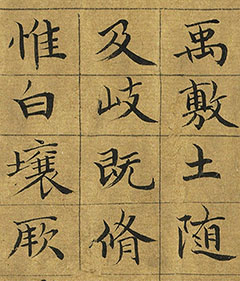 禹敷土随
及岐既脩
惟白壤厥